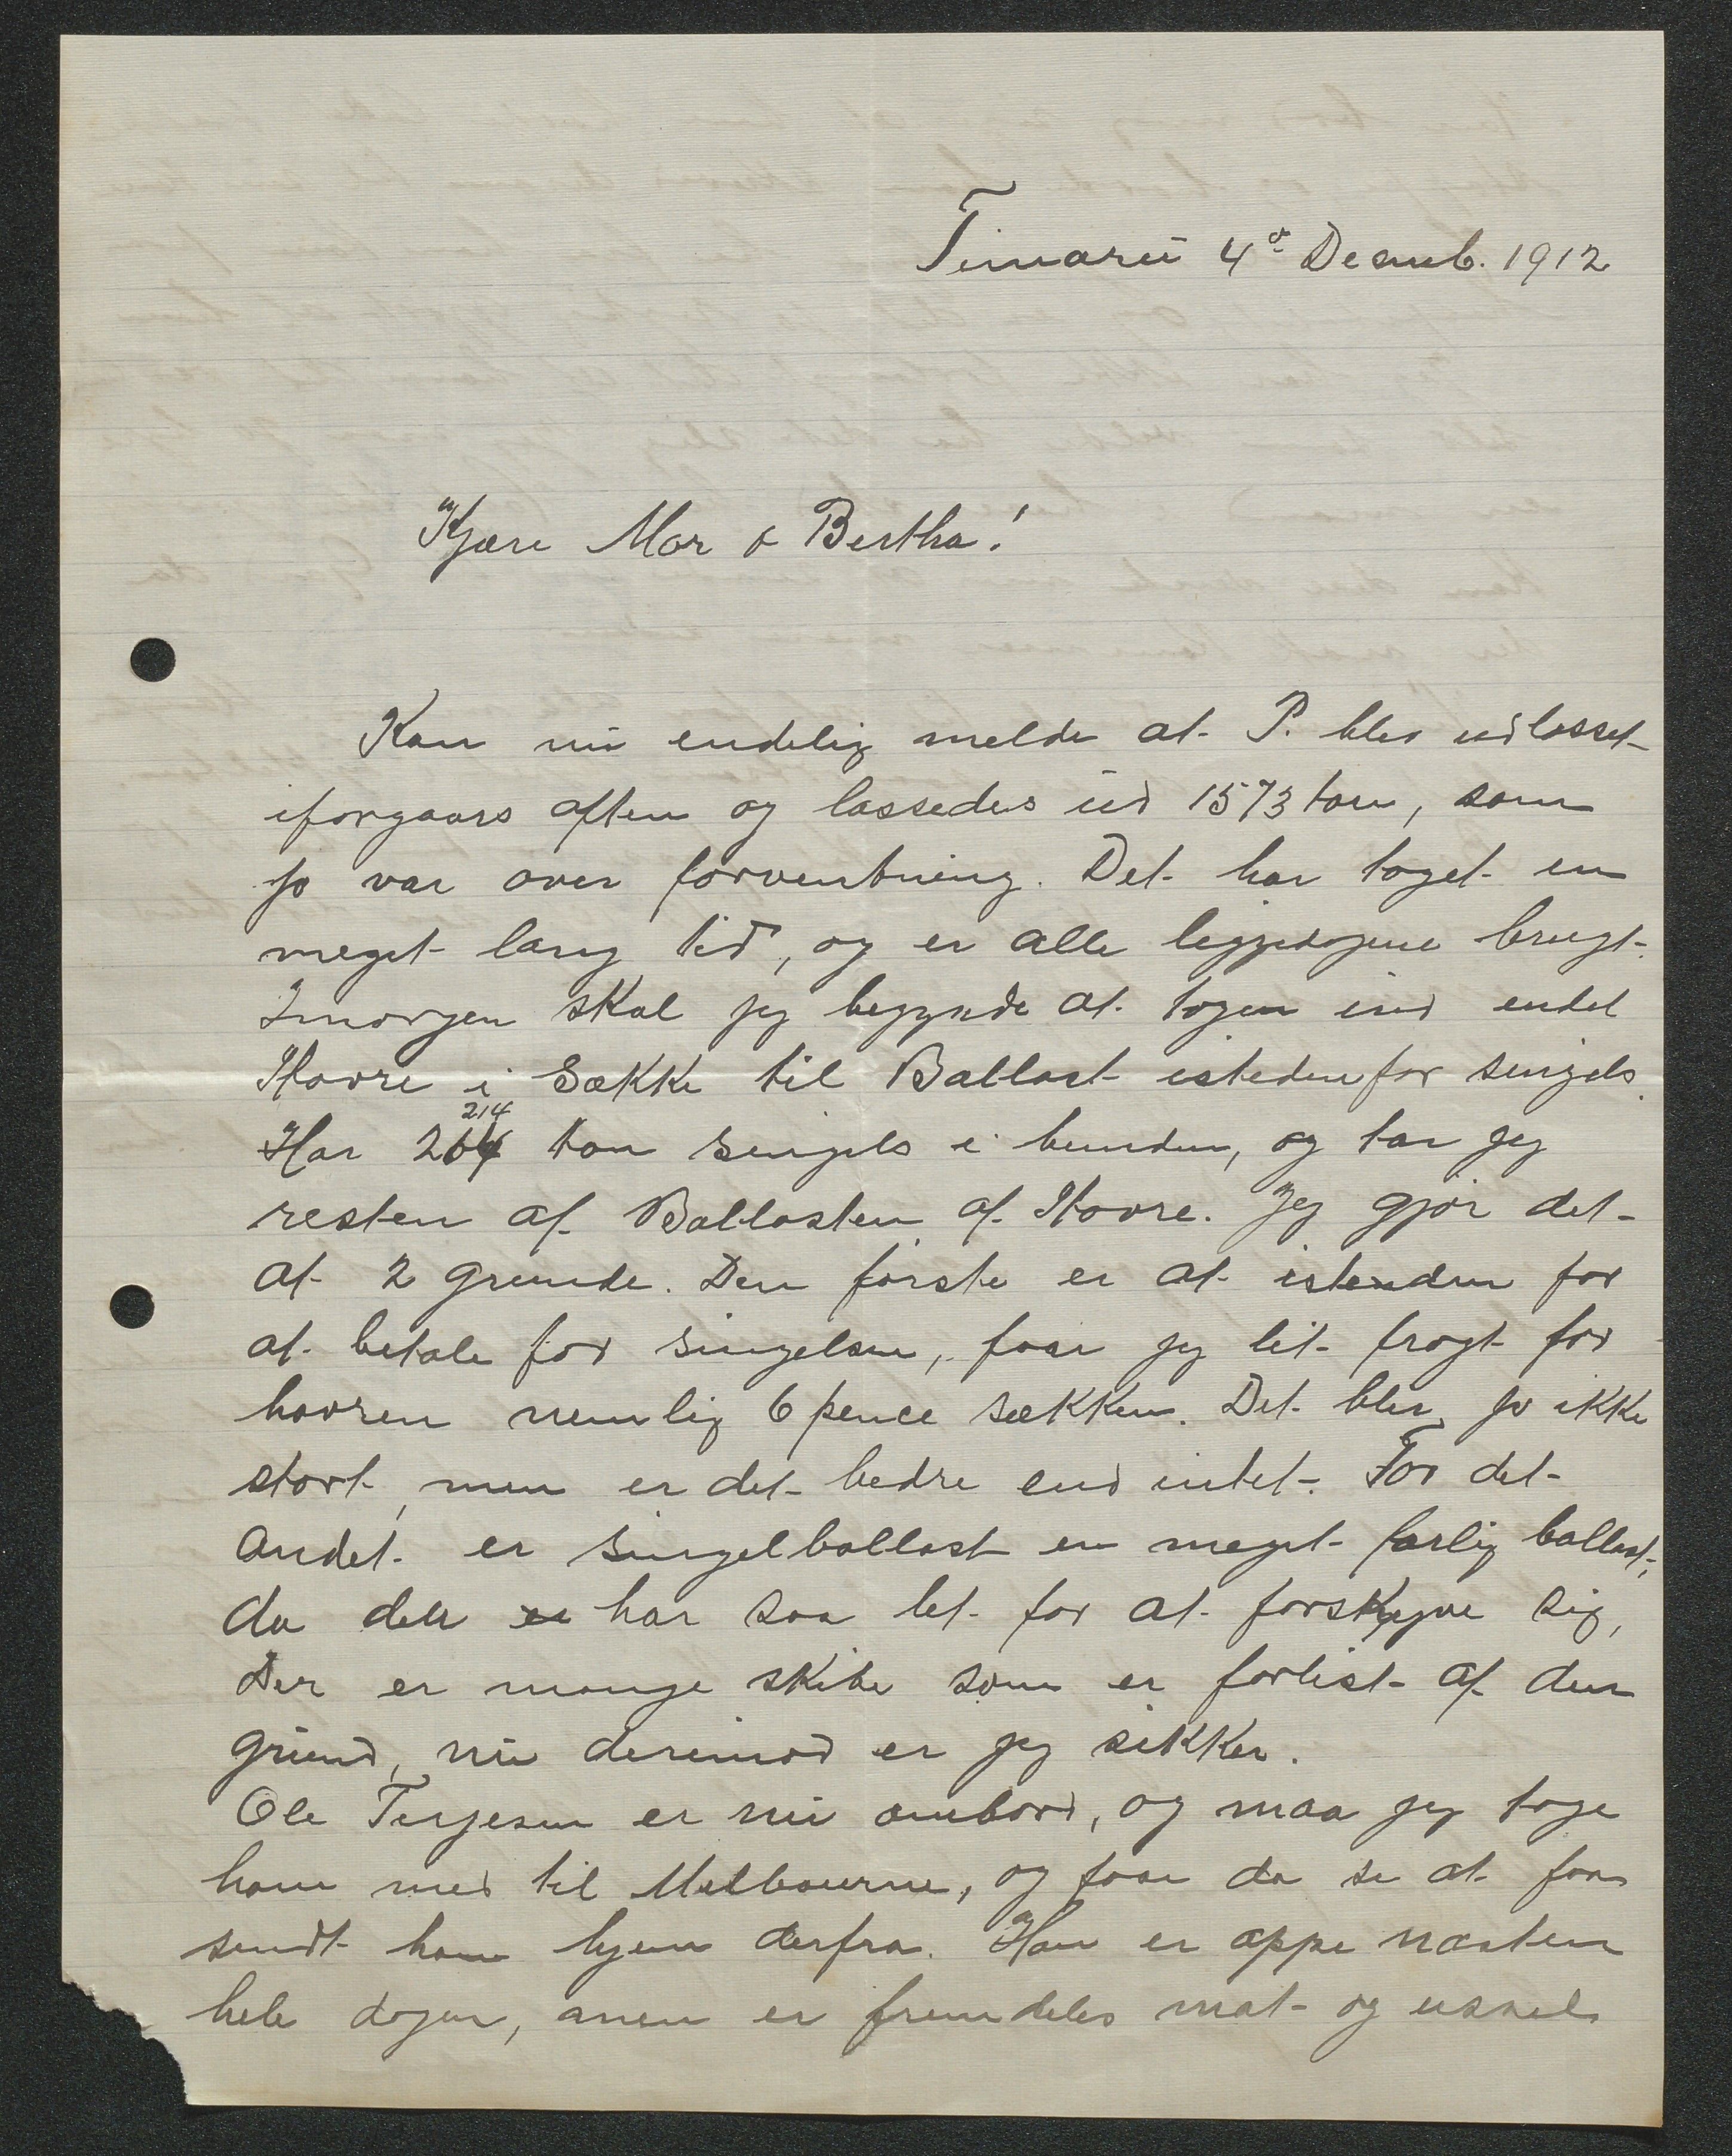 Timaru 4de Decmb. 1912
Kjære Mor & Bertha!
Kan nu endelig melde at P. blev udlosset
iforgaars aften og lossedes ud 1573 ton, som
jo var over forventning. Det har taget en
meget lang tid, og er alle liggedagene brugt.
Imorgen skal jeg begynde at tagen ind endel
Havre i Sække til Ballast istedenfor singels.
Har 214 ton singels i bunden, og tar jeg
resten af Ballasten af Havre. Jeg gjør det
af 2 grunde. Den første er at istenden for
at betale for singelsen, faar jeg lit fragt for
havren nemlig 6 pence sækken. Det blir jo ikke
stort, men er det bedre end intet. For det
andet er singelballast en meget farlig ballast,
da den har saa let for at forskyve sig,
Der er mange skibe som er forlist af den
grund, nu derimod er jeg sikker.
Ole Terjesen er nu ombord, og maa jeg tage
ham med til Melbourne, og faar da se at faa
sendt ham hjem derfra. Han er oppe næsten
hele dagen, men er fremdeles mat og ussel